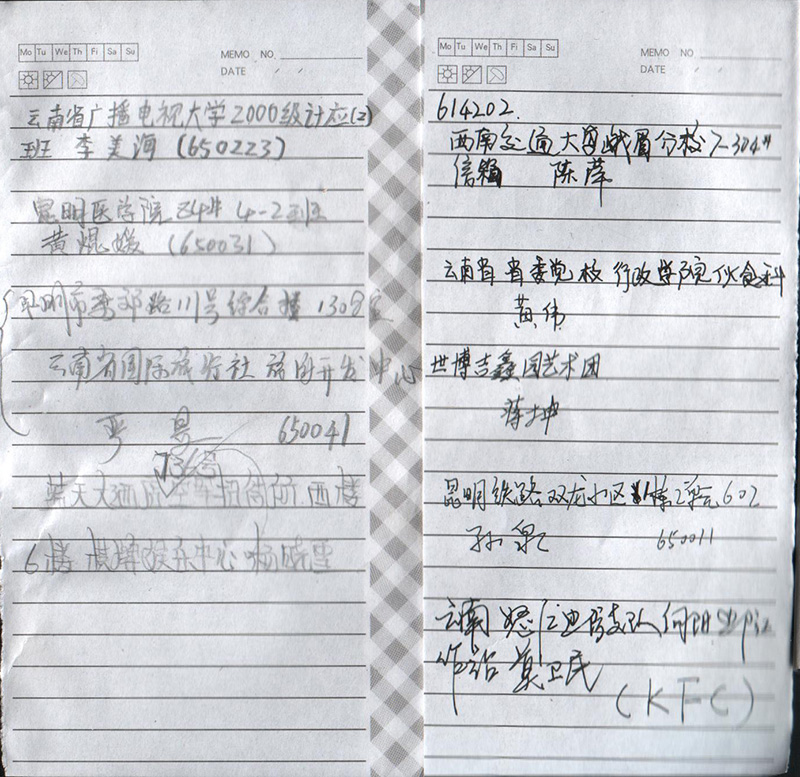 Mo Tu We Th Fi Sa Su
MEMO NO.
DATE / /
云南省广播电视大学2000级计应(2)
班 李美海 (650223)
昆明医学院 84# 4-2班
黄焜媛 (650031)
昆明市 路111号综合楼 1308室
云南省国际旅行社 旅游开发中心
严昆 650041
736号
西楼
6楼 棋牌娱乐中心 杨晓雪
Mo Tu We Th Fi Sa Su
MEMO NO
DATE / /
614202.
西南交通大学峨眉分校7-304#
信箱 陈萍
云南省省委党校行政学院伙食科
黄伟
世博吉鑫园艺术团
蒋坤
昆明铁路双龙小区 栋2单元602
孙泉 650011
云南怒江边防支队
作站 莫卫民
(KFC)